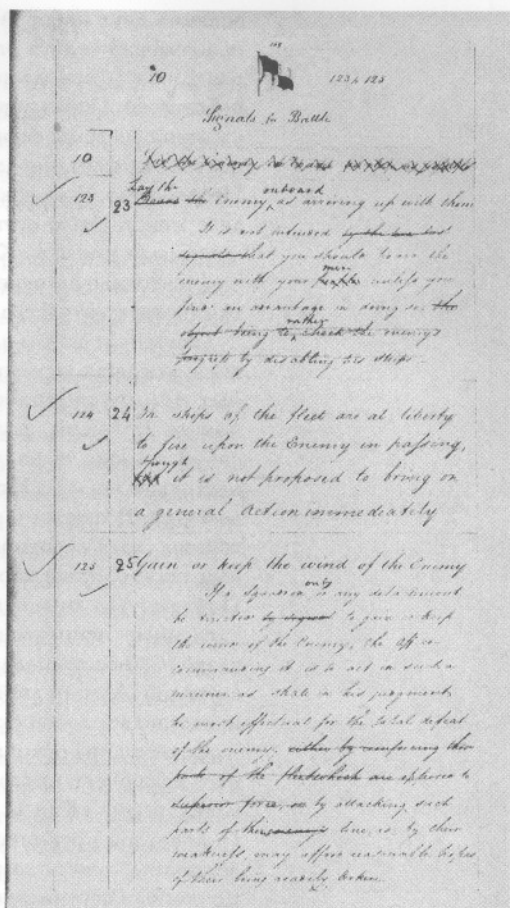 10 123 to 125
Signals in Battle
10
Lay the onboard
123 23 Board the Enemy, as arriving up with them
It is not intended by the two last
signals that you should board the
enemy with your people men unless you
find an advantage in doing so, the
object being to rather check the enemy's
progress by disabling his ships.
124 24 The ships of the fleet are at liberty
to fire upon the Enemy in passing,
though
it is not proposed to bring on
a general Action immediately
125 25 Gain or keep the wind of the Enemy
If a Squadron or any detachment
be directed by signal to gain or keep
the wind of the Enemy, the officer
commanding it is to act in such a
manner as shall in his judgment
be most effectual for the total defeat
of the enemy; either by reinforcing those
parts of the fleet which are opposed to
superior force, or by attacking such
parts of the enemy's line, as, by their
weakness, may afford reasonable hopes
of their being easily broken.